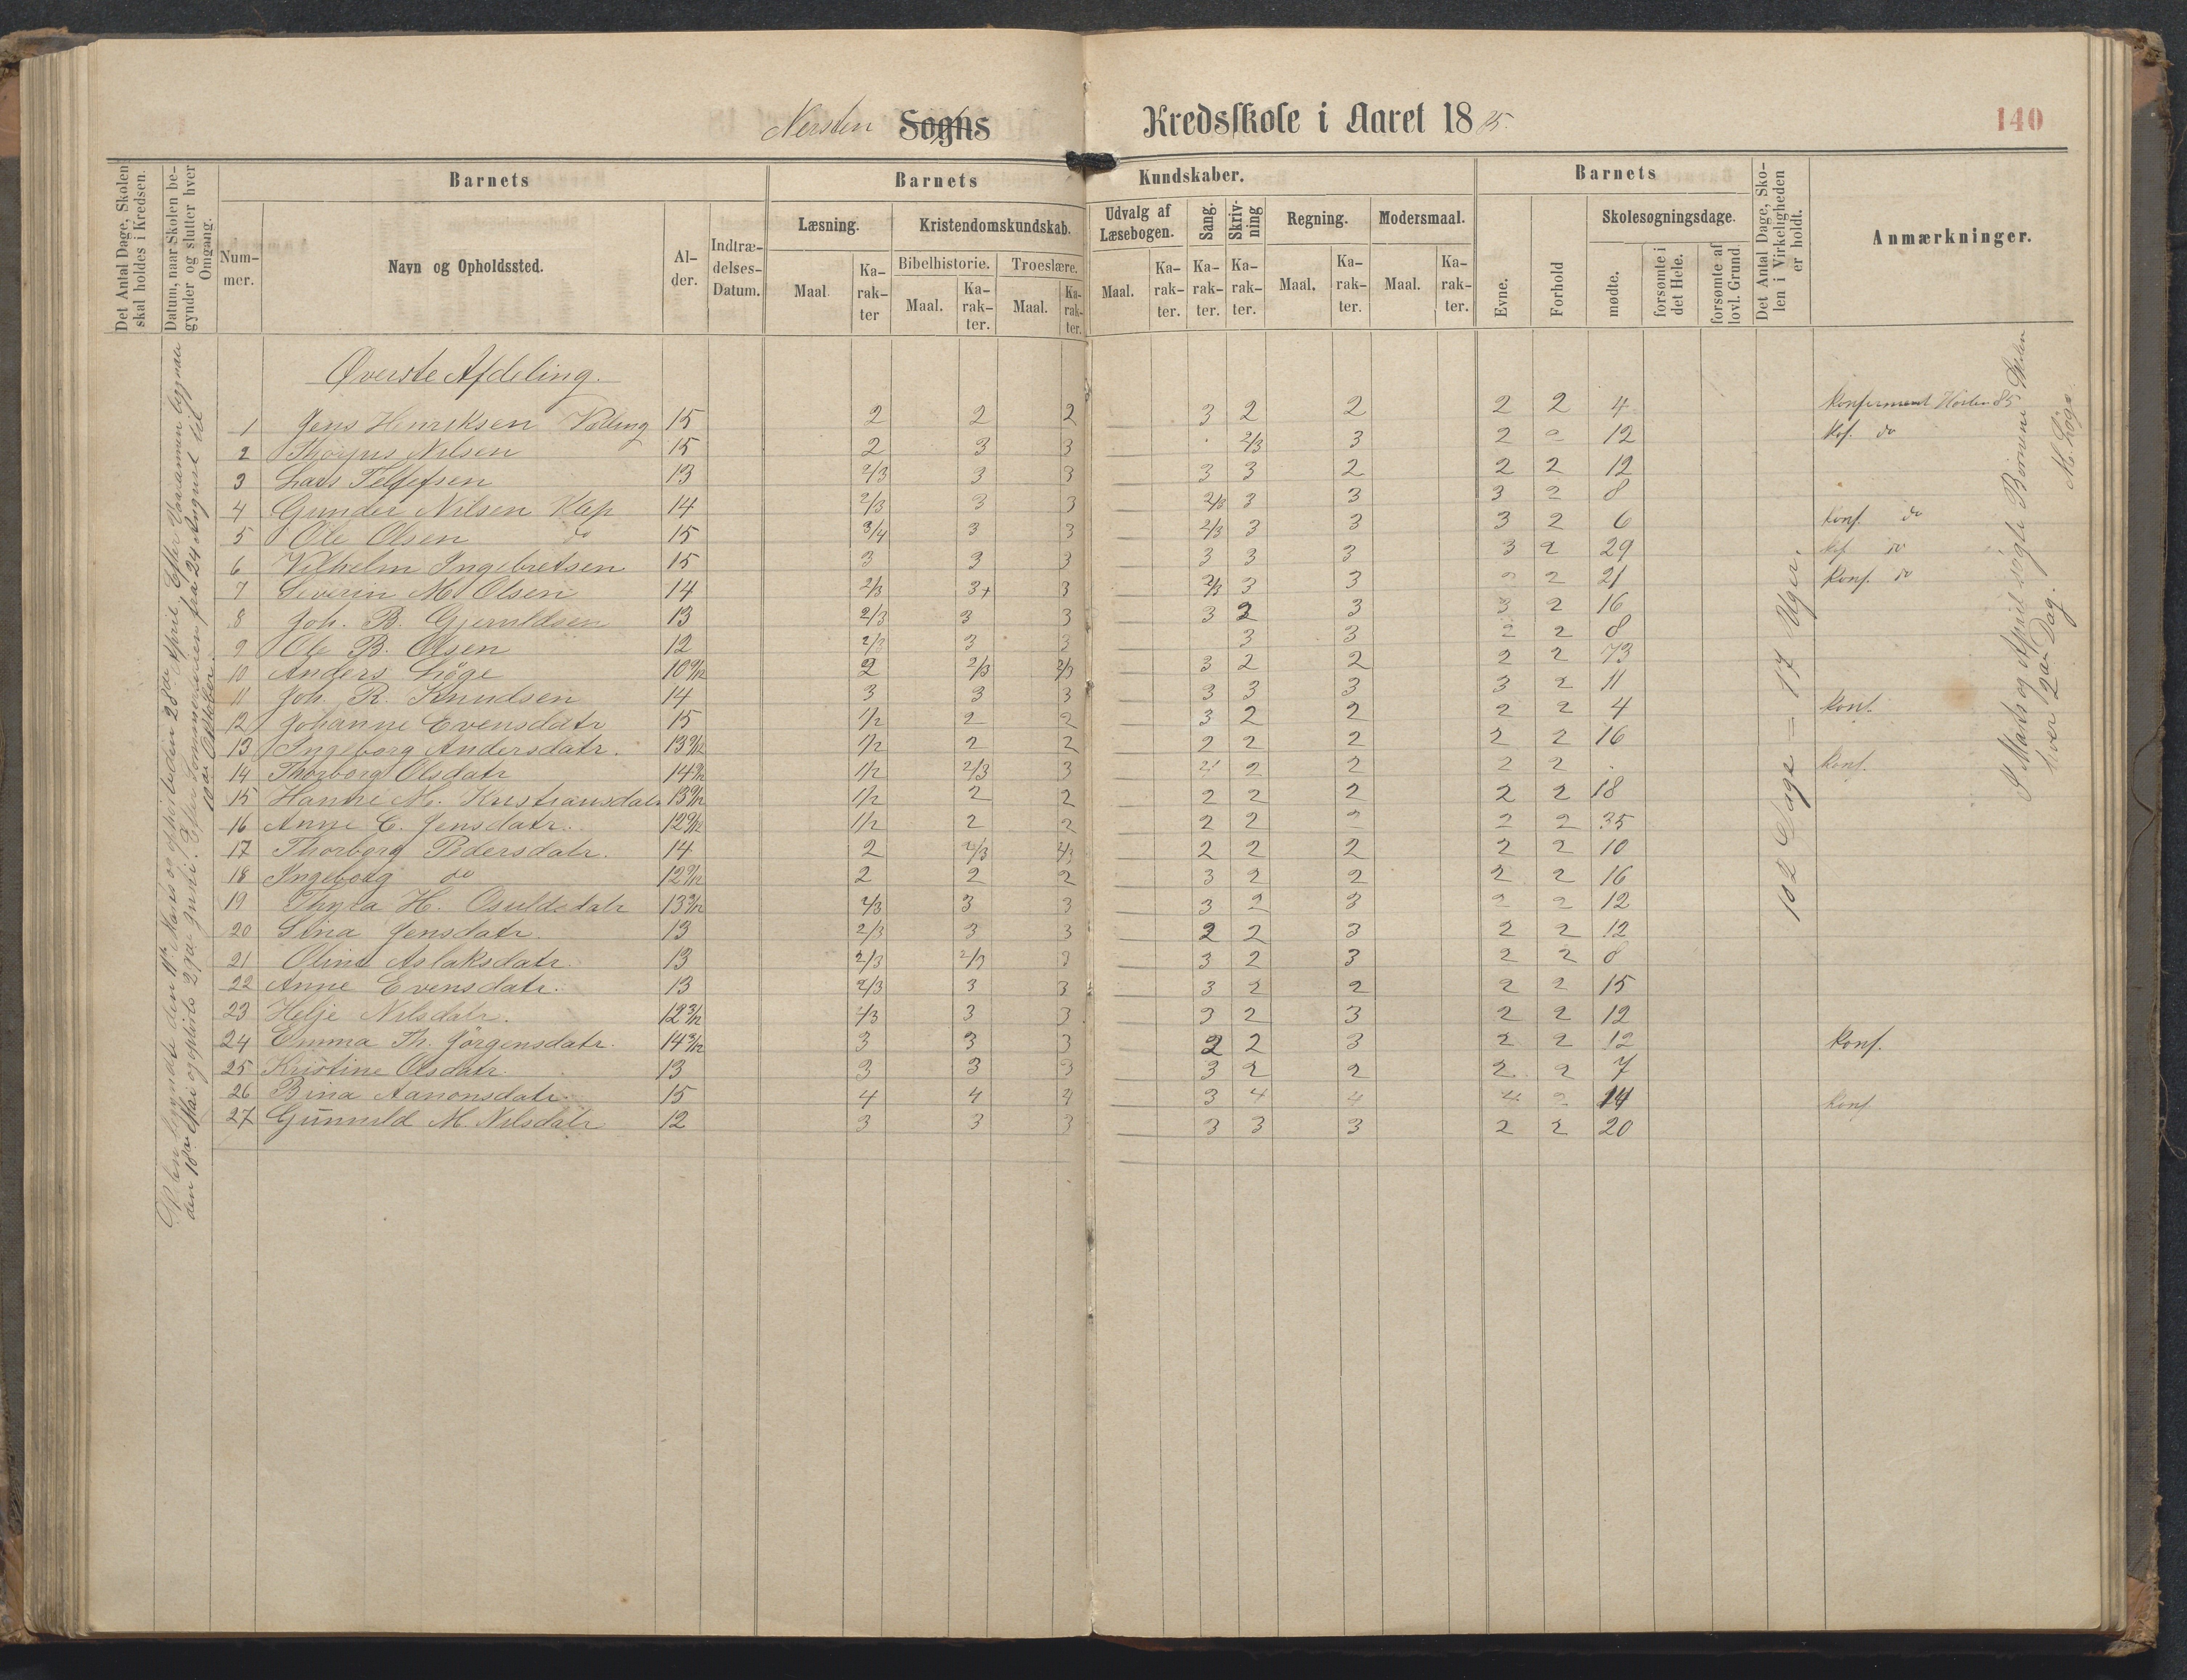 Nersten Sogns Kredsskole i Aaret 1885.
140
Det Antal Dage, Skolen skal holdes i Kredsen.
Datum, naar Skolen begynder og slutter hver Omgang.
Barnets
Nummer.
Navn og Opholdssted.
Alder.
Indtrædelses-Datum.
Barnets Kundskaber.
Læsning.
Maal
Karakter
Kristendomskundskab.
Bibelhistorie.
Maal.
Karakter.
Troeslære.
Maal.
Karakter.
Udvalg af Læsebogen.
Maal.
Karakter.
Sang.
Karakter.
Skrivning
Karakter.
Regning.
Maal.
Karakter.
Modersmaal.
Maal.
Karakter.
Barnets
Evne.
Forhold
Skolesøgningsdage.
mødte.
forsømte i det Hele.
forsømte af lovl. Grund.
Det Antal Dage, Skolen i Virkeligheden er holdt.
Anmærkninger.
Øverste Afdeling.
1 Jens Henriksen 15 2 2 2 3 2 2 2 2 4 Konfirmeret Høsten 85
2 Nilsen 15 2 3 3 2/3 3 2 2 12 Kof. do
3 Lars Tellefsen 13 2/3 3 3 3 3 2 2 2 12
4 Gunder Nilsen Klep 14 2/3 3 3 2/3 3 3 3 2 8
5 Ole Olsen do 15 3/4 3 3 2/3 3 3 3 2 6 Konf. do
6 Vilhelm Ingebretsen 15 3 3 3 3 3 3 3 2 29 Kof do
7 Severin M. Olsen 14 2/3 3+ 3 2/3 3 3 2 2 21 Konf. do
8 Joh. B. Gjeruldsen 13 2/3 3 3 3 2 3 3 2 16
9 Ole B. Olsen 12 2/3 3 3 3 3 2 2 8
10 Anders Løge 10 9/12 2 2/3 2/3 3 2 2 2 2 73
11 Joh. R. Knudsen 14 3 3 3 3 3 3 3 2 11
12 Johanne Evensdatr 15 1/2 2 2 3 2 2 2 2 4 Konf.
13 Ingeborg Andersdatr. 13 9/12 1/2 2 2 2 2 2 2 2 16
14 Thorborg Olsdatr 14 9/12 1/2 2/3 3 2 2 2 2 2 Konf.
15 Hanne M. Kristiansdatr 13 9/12 1/2 2 2 2 2 2 2 2 18
16 Anne C. Jensdatr. 12 9/12 1/2 2 2 2 2 2 2 2 35
17 Thorborg Pedersdatr. 14 2 2/3 2/3 2 2 2 2 2 10
18 Ingeborg do 12 9/12 2 2 2 3 2 2 2 2 16
19 Thyra H. Osuldsdatr 13 9/12 2/3 3 3 3 2 3 2 2 12
20 Sina Jensdatr. 13 2/3 3 3 2 2 3 2 2 12
21 Oline Aslaksdatr. 13 2/3 2/3 3 3 2 3 2 2 8
22 Anne Evensdatr. 13 2/3 3 3 3 2 2 2 2 15
23 Helje Nilsdatr. 12 3/12 2/3 3 3 3 2 3 2 2 12
24 Emma Th. Jörgensdatr. 14 9/12 3 3 3 2 2 3 2 2 12 Konf.
25 Kristine Olsdatr. 13 3 3 3 3 2 2 2 2 7
26 Bina Aanonsdatr. 15 4 4 4 3 4 4 4 2 14 Konf
27 Gunnild M. Nilsdatr 12 3 3 3 3 3 3 2 2 20
begyndte den 11te Marts og ophørte den 28de April. Efter Vaaraannen begyndte
den 18de Mai og ophørte 29de Juni. Efter Sommerferien fra 24 August til
10de Oktober.
102 Dage = 17 Uger.
I Marts og April søgte Børnene Skolen
hver 2den Dag.
M. Löge.